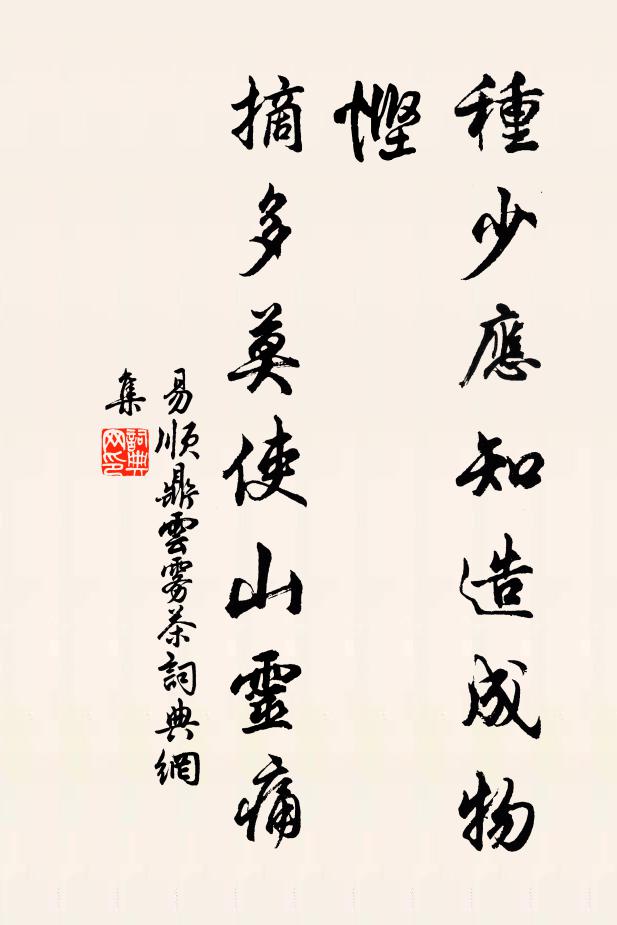 種少應知造成物
慳
摘多莫使山靈痛
易順鼎雲霧茶詞典網
集
詞典
网印